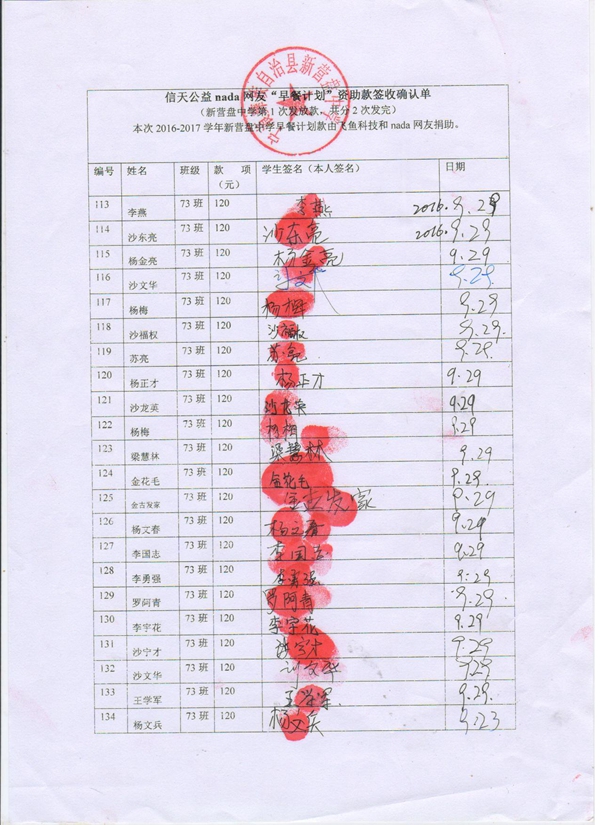 自治县新营盘中学
信天公益 nada 网友“早餐计划”资助款签收确认单
（新营盘中学第 1 次发放款，共分 2 次发完）
本次 2016-2017 学年新营盘中学早餐计划款由飞鱼科技和 nada 网友捐助。
编号 姓名 班级 款 项（元） 学生签名（本人签名） 日期
113 李燕 73 班 120 李燕 2016.9.29
114 沙东亮 73 班 120 沙东亮 2016.9.29
115 杨金亮 73 班 120 杨金亮 9.29
116 沙文华 73 班 120 9.29
117 杨梅 73 班 120 杨梅 9.29
118 沙福权 73 班 120 沙福权 9.29.
119 苏亮 73 班 120 苏亮 9.29.
120 杨正才 73 班 120 杨正才 9.29
121 沙龙英 73 班 120 沙龙英 9.29
122 杨梅 73 班 120 杨梅 9.29
123 梁慧林 73 班 120 梁慧林 9.29
124 金花毛 73 班 120 金花毛 9.29.
125 金古发家 73 班 120 金古发家 9.29
126 杨文春 73 班 120 杨文春 9.29
127 李国志 73 班 120 李国志 9.29
128 李勇强 73 班 120 李勇强 9.29
129 罗阿青 73 班 120 罗阿青 9.29.
130 李宇花 73 班 120 李宇花 9.29
131 沙宁才 73 班 120 9.29
132 沙文华 73 班 120 9.29
133 王学军 73 班 120 王学军. 9.29.
134 杨文兵 73 班 120 杨文兵 9.23